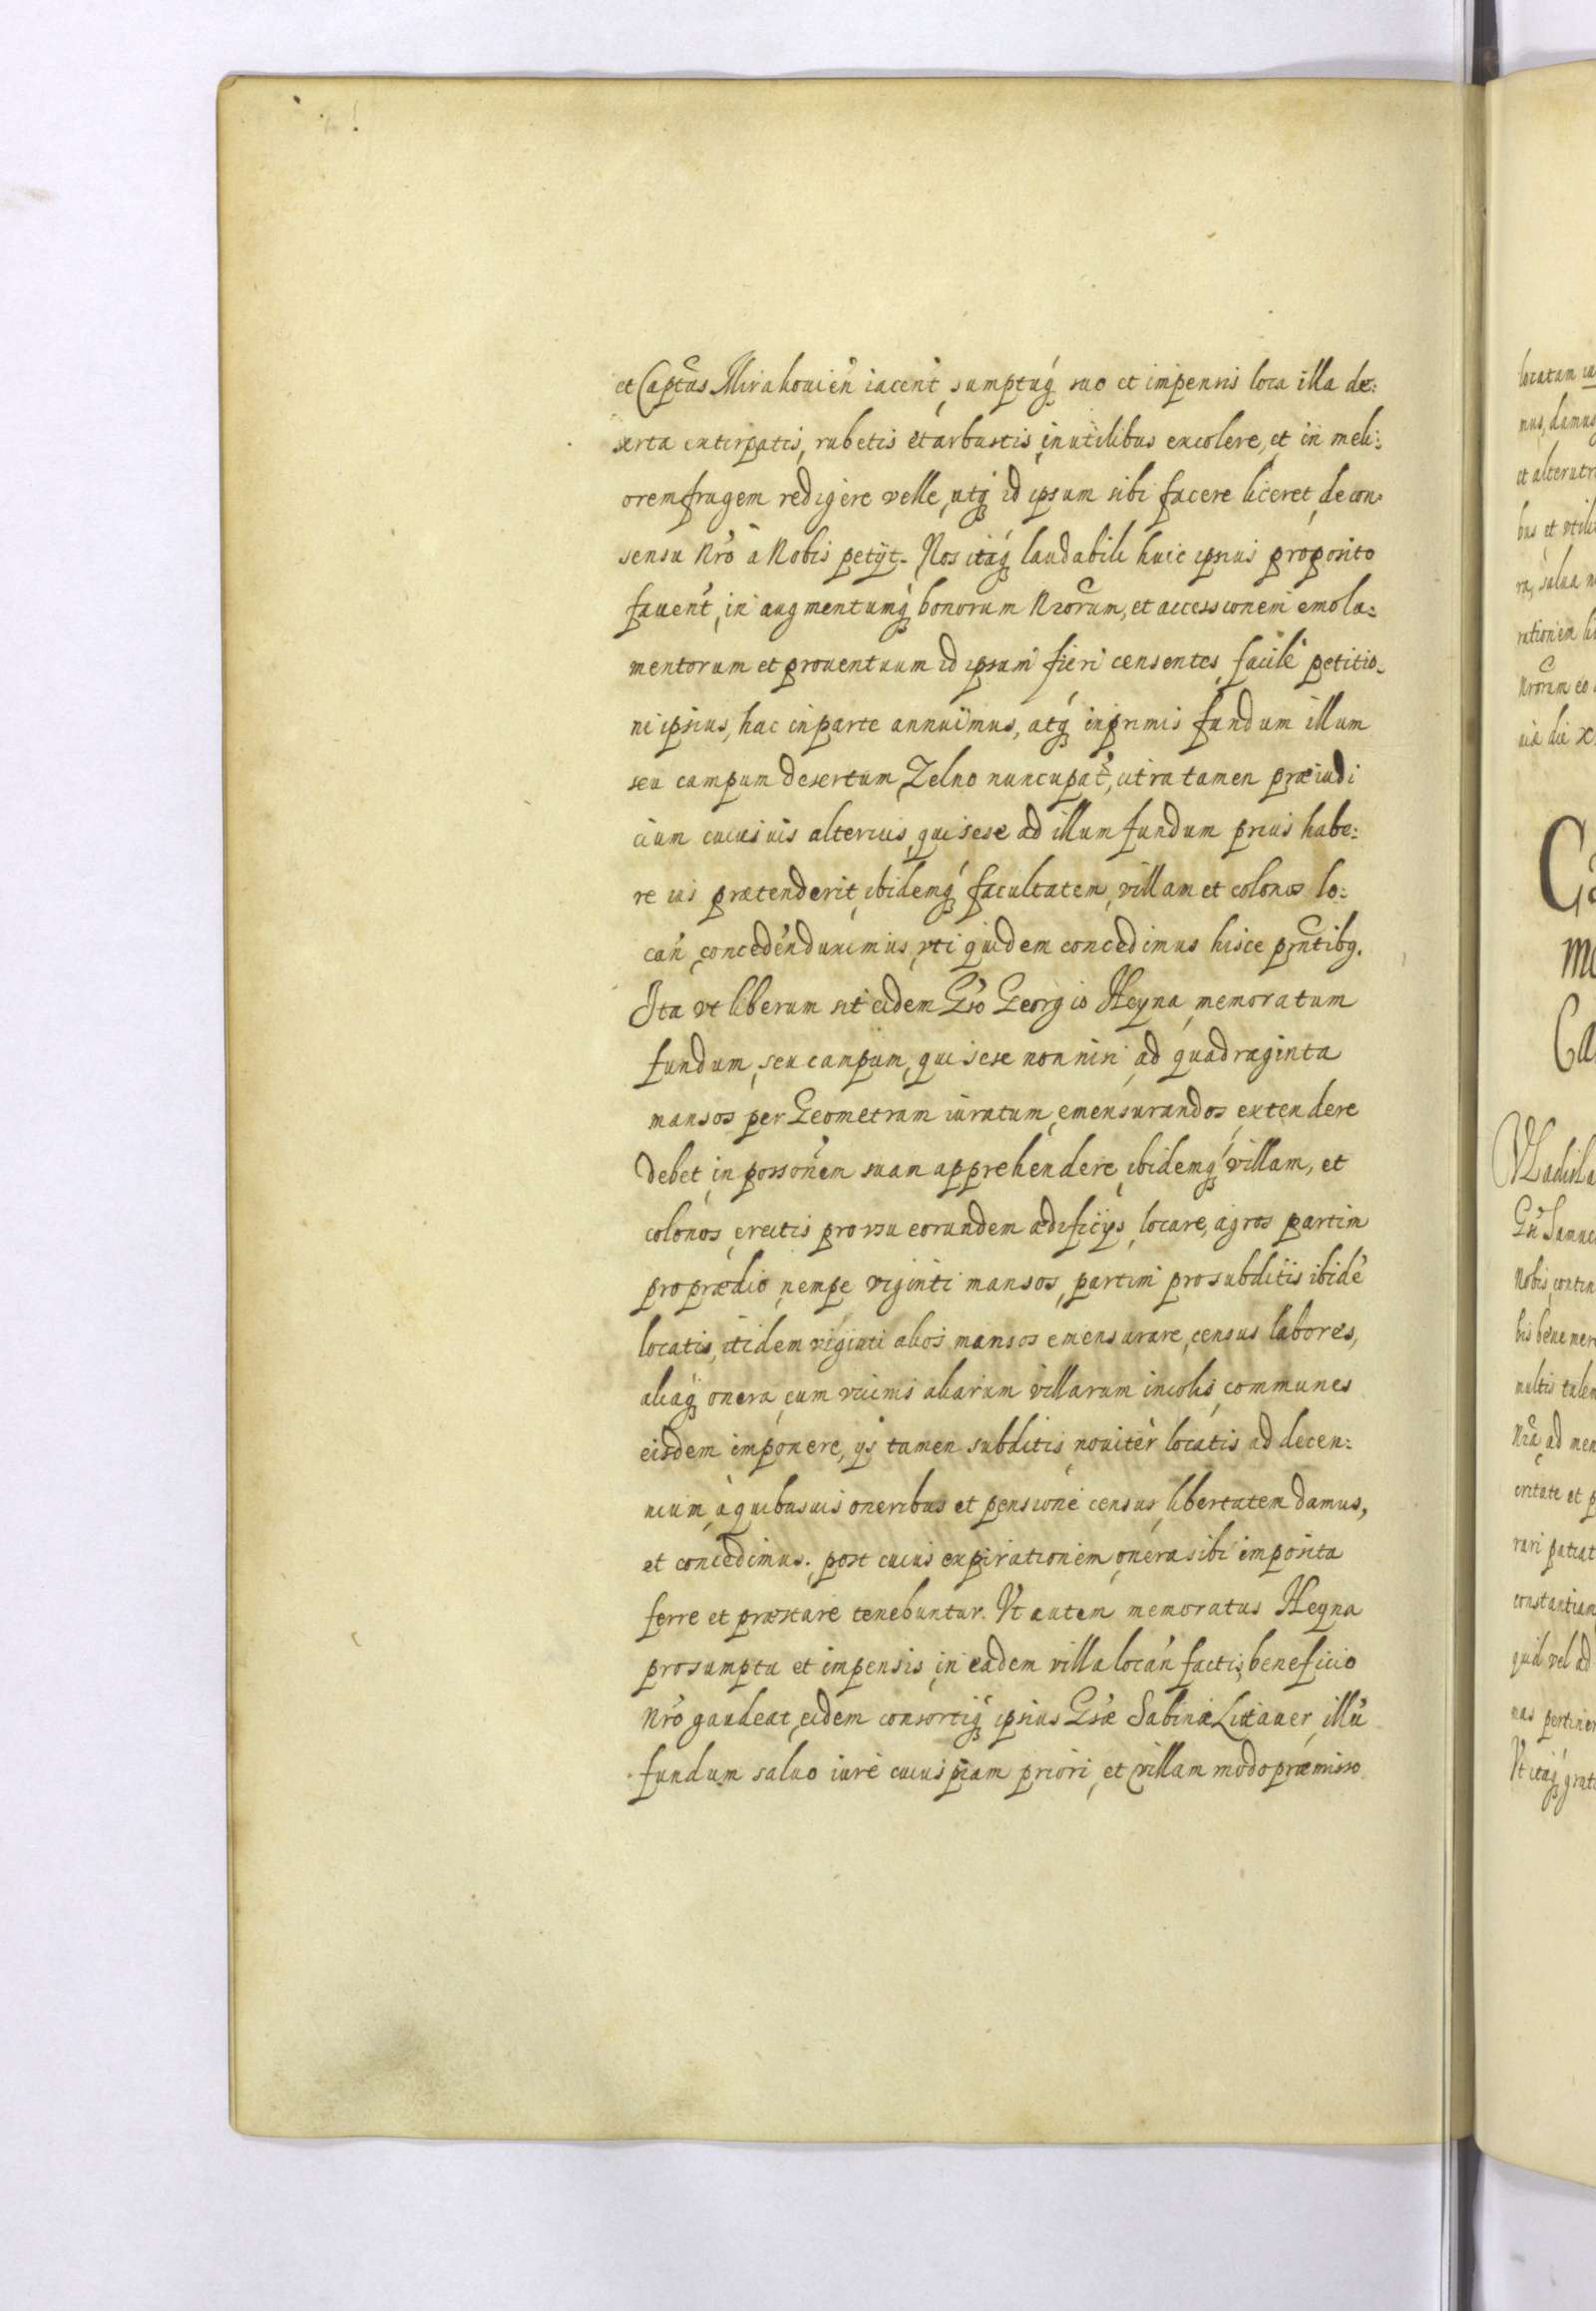 et Captus Mirahouien̄ iacent̄, sumptuq́ suo et impensis loca illa de:
serta extirpatis, rubetis et arbustis, inutilibus excolere, et in meli:
orem frugem redigere velle, utq́ id ipsum sibi facere liceret, de con:
sensu Nr̄o â Nobis petijt. Nos itaq́ laudabili huic ipsius proposito
fauent̄, in augmentumq́ bonorum Nrorum, et accessionem emolu:
mentorum et prouentuum id ipsum fieri censentes, facilè petitio.
ni ipsius, hac in parte annuimus, atq́ inprimis fundum illum
seu campum desertum Zelno nuncupat̄, citra tamen præiudi
cium cuiusuis alterius, qui sese ad illum fundum prius habe:
re ius prætenderit, ibidemq́ facultatem, villam et colonos lo:
can̄, conceden̄ duximus, vti quidem concedimus hisce pn̄tibq.
Ita vt liberum sit eidem Gs̄o Georgio Heyna, memoratum
fundum, seu campum, qui sese non nisi ad quadraginta
mansos per Geometram iuratum, emensurandos, extendere
debet, in posson̄em suam apprehendere, ibidemq́ villam, et
colonos, erectis pro vsu eorundem ædificijs, locare, agros partim
pro prædio, nempe viginti mansos, partim pro subditis ibidē
locatis, itidem viginti alios mansos emensurare, census labores,
aliaq́ onera, cum vicinis aliarum villarum incolis, communes
eisdem imponere, ijs tamen subditis, nouiter locatis ad decen:
nium, à quibusuis oneribus et pensione census, libertatem damus,
et concedimus. post cuius expirationem, onera sibi imposita
ferre et præstare tenebuntur. Vt autem memoratus Heyna
pro sumptu et impensis, in eadem villa locan̄ factis, beneficio
Nr̄o gaudeat, eidem consortiq́ ipsius Gs̄æ Sabinæ Litauer, illū
fundum saluo iure cuiuspiam priori, et villam modo præmisso
locatam
mus, damus
et alterutr
bus et vtili
ra, salua
rationem
Nrorum eo
die X
Ca
Ca
VLadisla
Gn̄ Samue
Nobis, contin
bis bene mer
multis talem
Nrā, ad
oritate et p
rari patiat
constantiam
quid vel ad
nas pertinen
Vt itaq́ grat